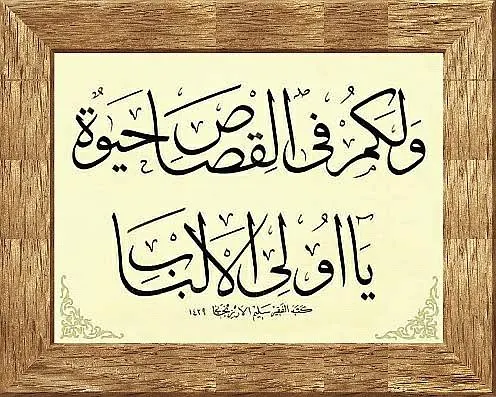 وَلَكُمْ فِى الْقِصَاصِ حَيٰوةٌ
يَا اُولِى الْاَلْبَابِ
كتبه الفقير سليم ١٤٢٩